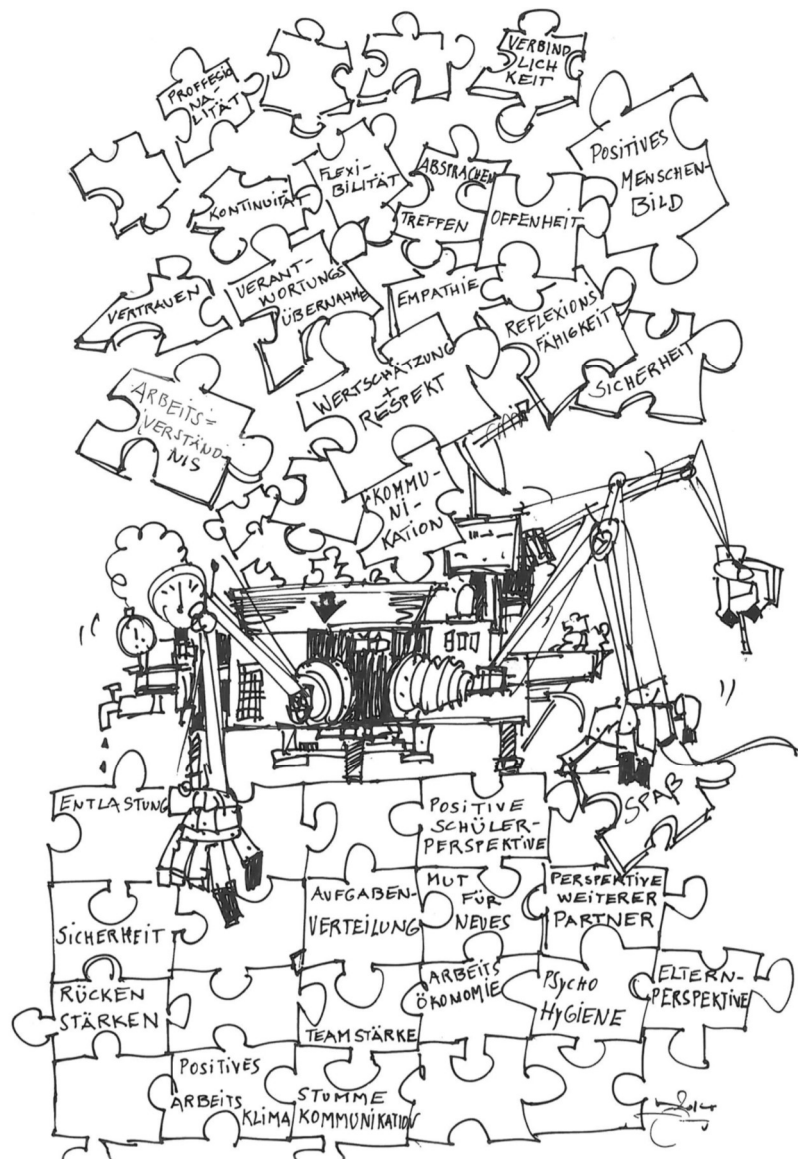 PROFFESIO
NA-
LITÄT
VERBIND
LICH
KEIT
POSITIVES
MENSCHEN-
BILD
KONTINUITÄT
FLEXI-
BILITÄT
ABSPRACHEN
TREFFEN
OFFENHEIT
VERTRAUEN
VERANT-
WORTUNGS
ÜBERNAHME
EMPATHIE
REFLEXIONS
FÄHIGKEIT
SICHERHEIT
WERTSCHÄTZUNG
+
RESPEKT
ARBEITS=
VERSTÄND-
NIS
KOMMU-
NI-
KATION
SPAß
ENTLASTUNG
POSITIVE
SCHÜLER-
PERSPEKTIVE
SICHERHEIT
AUFGABEN-
VERTEILUNG
MUT
FÜR
NEUES
PERSPEKTIVE
WEITERER
PARTNER
RÜCKEN
STÄRKEN
TEAMSTÄRKE
ARBEITS
ÖKONOMIE
PSYCHO
HYGIENE
ELTERN-
PERSPEKTIVE
POSITIVES
ARBEITS
KLIMA
STUMME
KOMMUNIKATION